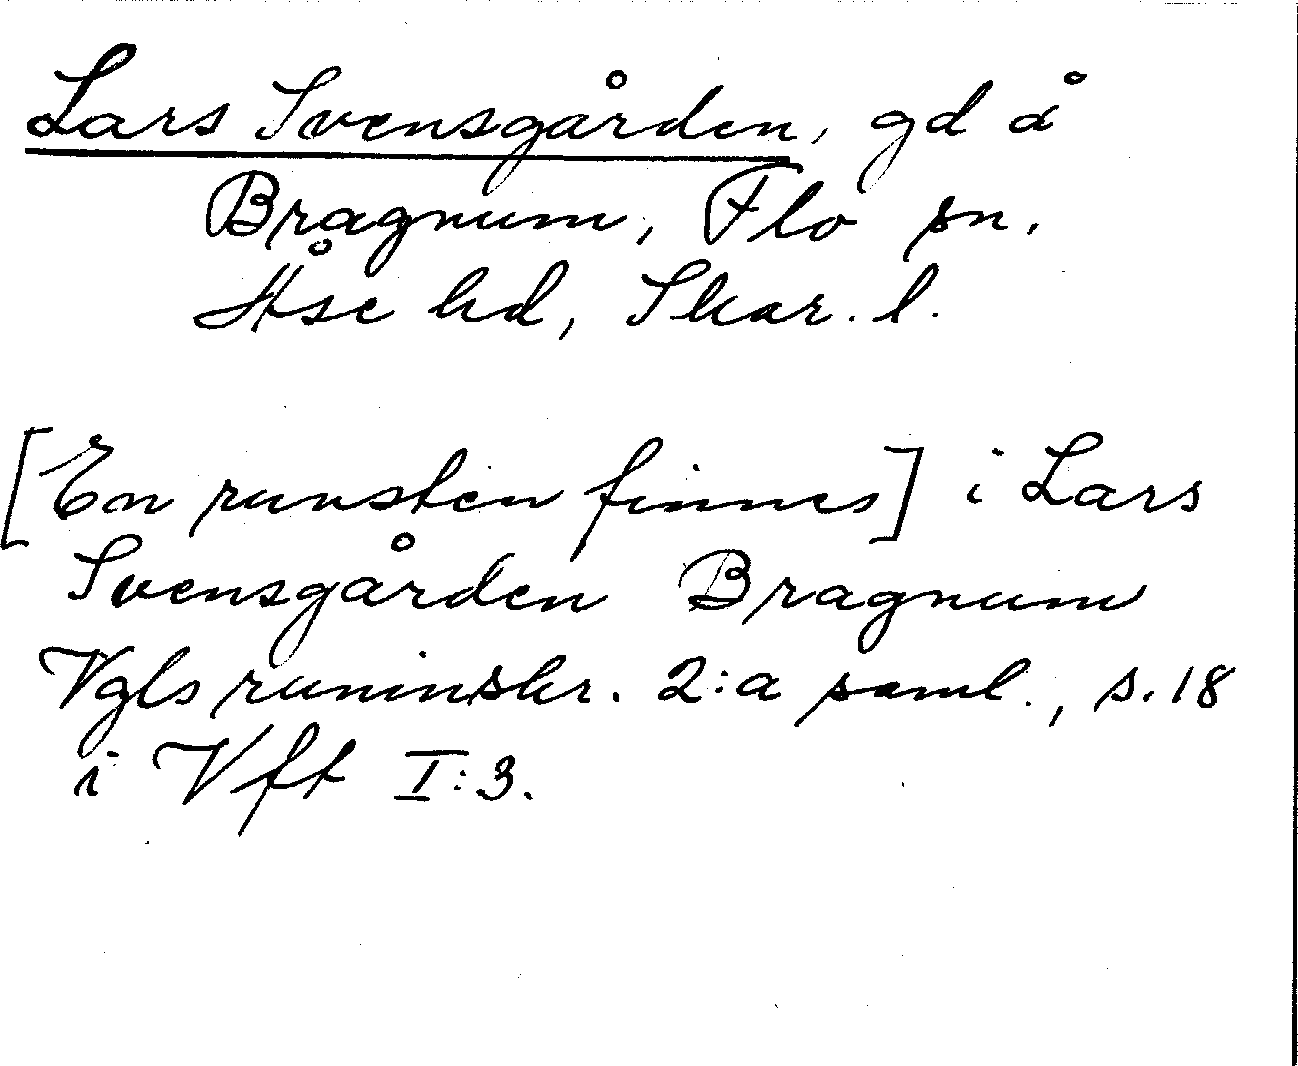 Lars Svensgården, gd å
Bragnum, Flo sn.
Åse hd, Skar. l.
[En runsten finnes] i Lars
Svensgården Bragnum
Vgls runinskr. 2:a saml., s. 18
i Vft I:3.